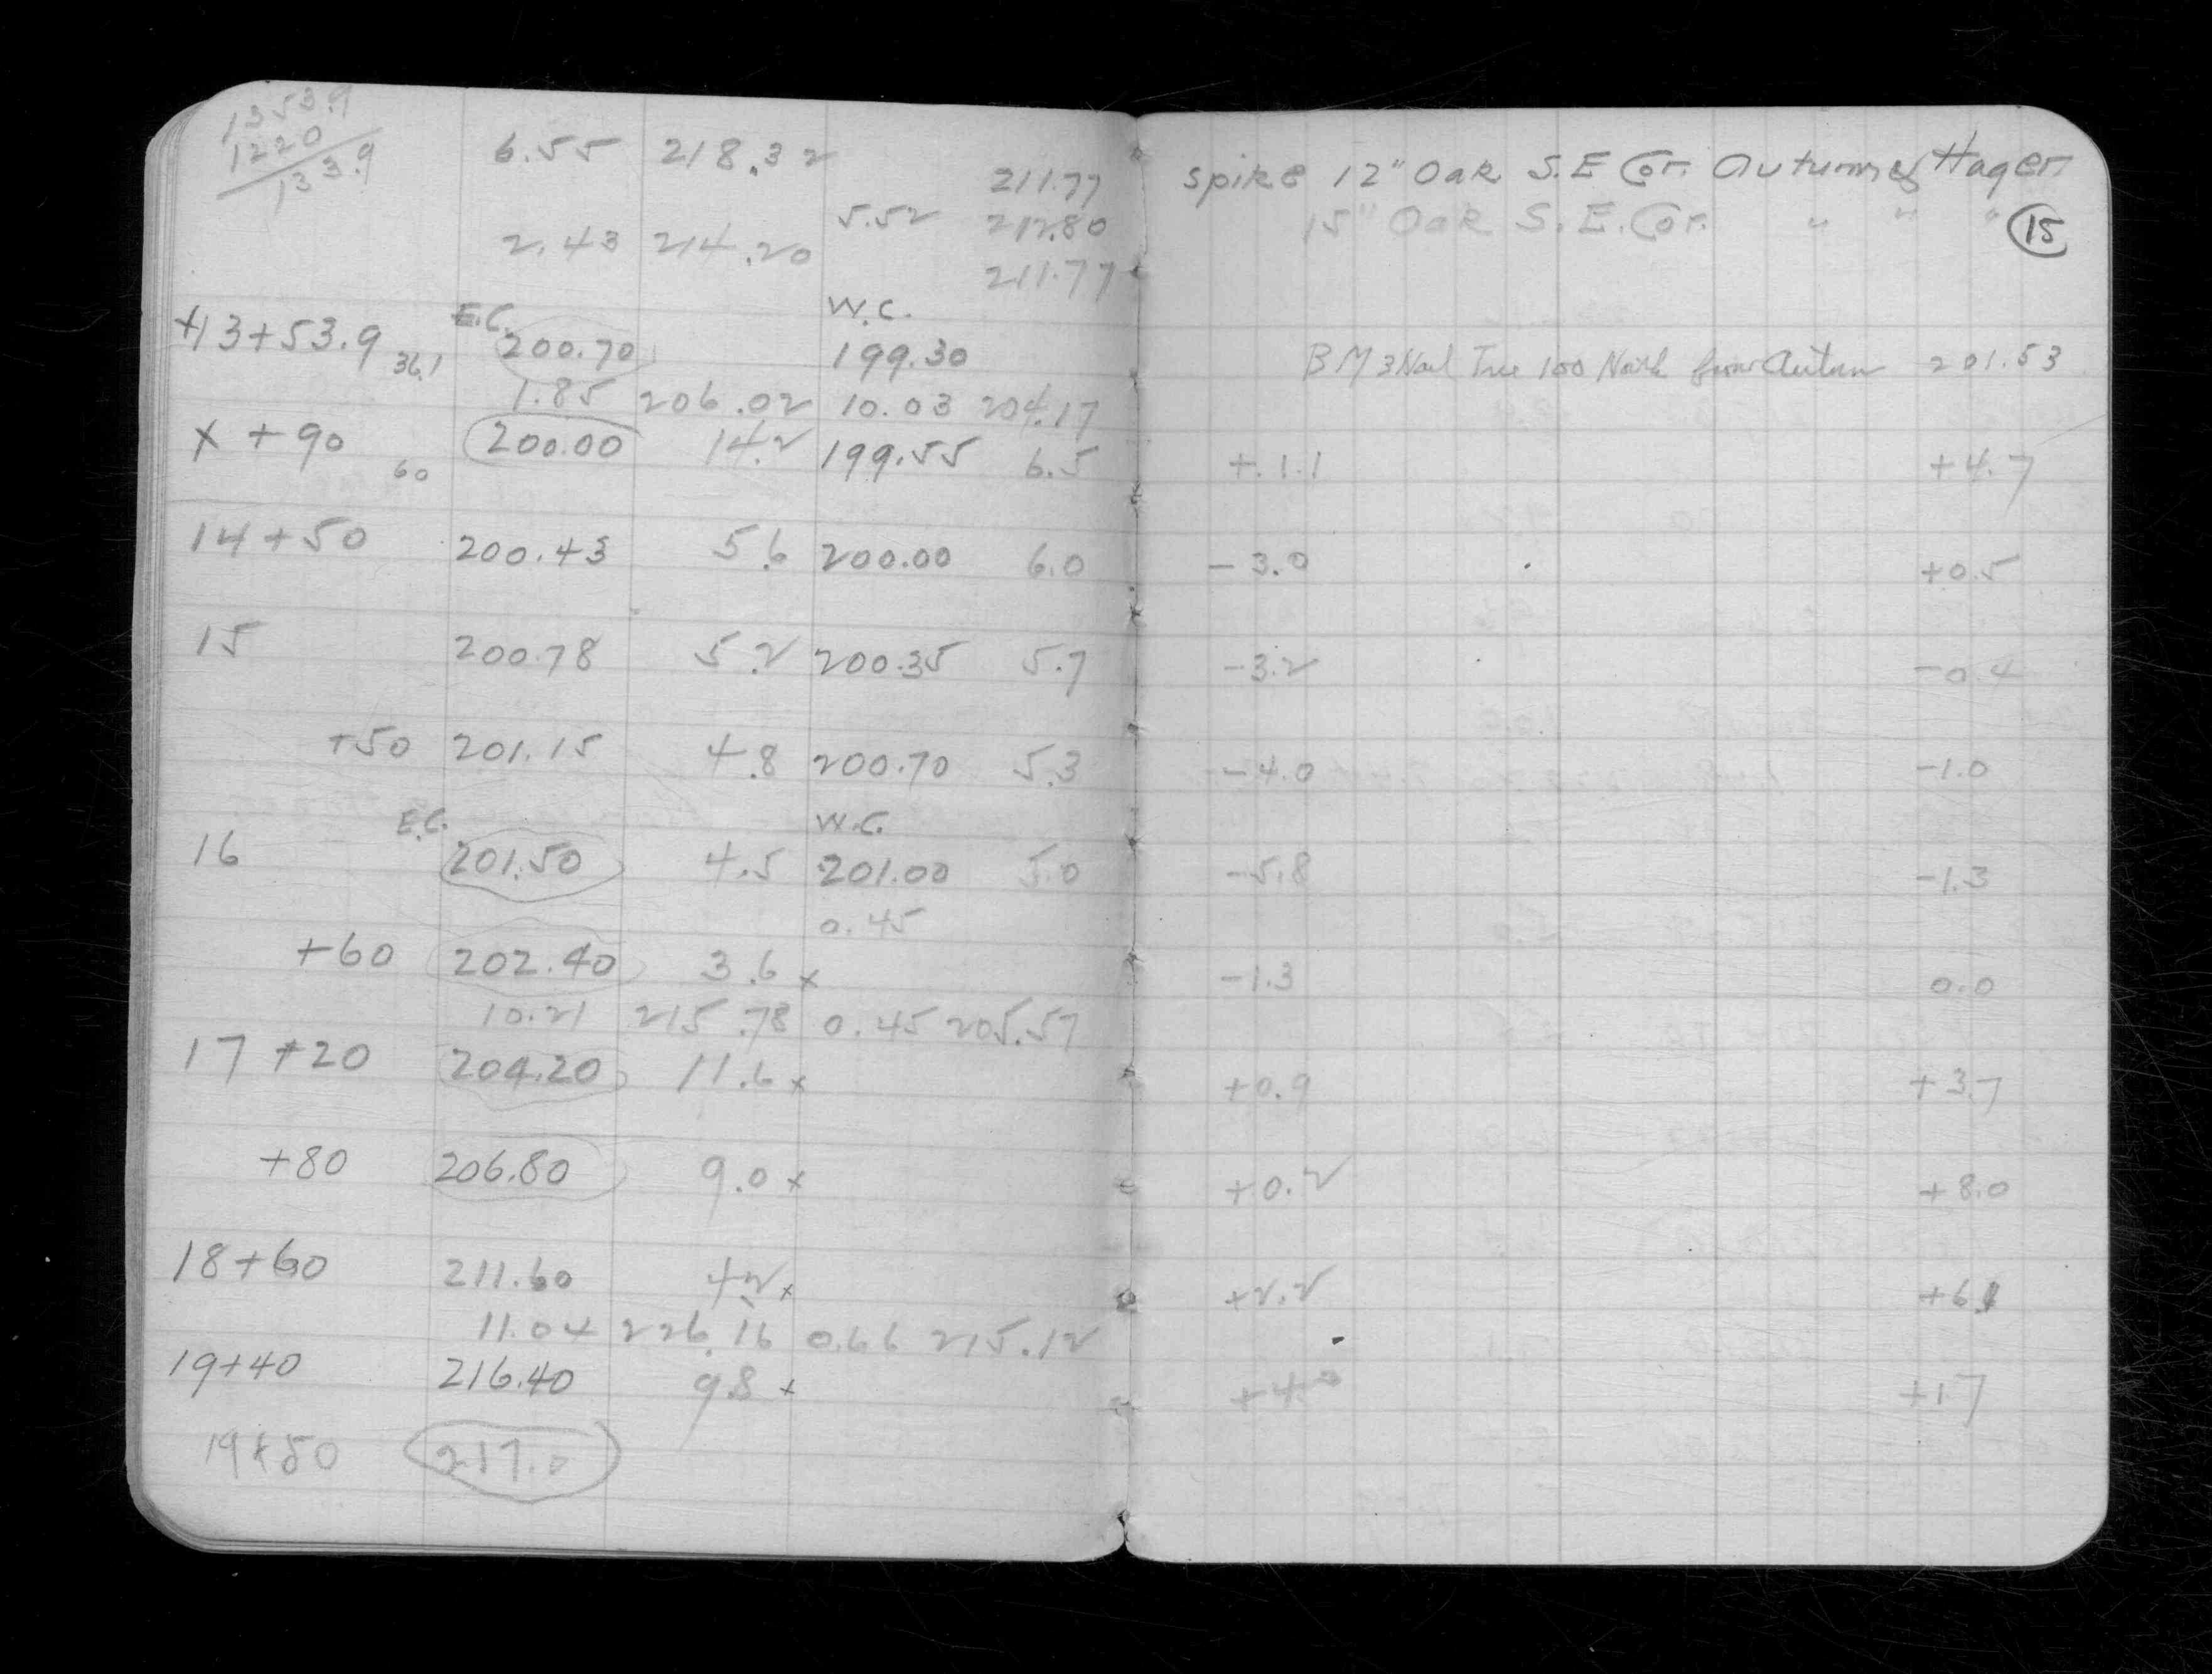 1353.9
1220
133.9
6.55 218.32 211.77 spike 12" Oak S.E Cor. Autumn & Hager
5.52 212.80 15" Oak S.E. Cor. " " " 15
2.43 214.20 211.77
E.C. W.C.
+13+53.9 36.1 200.70 199.30 BM 3 Nail Tree 100 North from Autum 201.53
1.85 206.02 10.03 204.17
x +90 60 200.00 14.2 199.55 6.5 +.1.1 +4.7
14+50 200.43 5.6 200.00 6.0 -3.0 +0.5
15 200.78 5.2 200.35 5.7 -3.2 -0.4
+50 201.15 4.8 200.70 5.3 -4.0 -1.0
E.C. W.C.
16 201.50 4.5 201.00 5.0 -5.8 -1.3
0.45
+60 202.40 3.6 x -1.3 0.0
10.21 215.78 0.45 205.57
17+20 204.20 11.6 x +0.9 +3.7
+80 206.80 9.0 x +0.2 +8.0
18+60 211.60 4.2 x +2.2 +6.1
11.04 226.16 0.66 215.12
19+40 216.40 9.8 x +4.0 +1.7
19+50 217.0